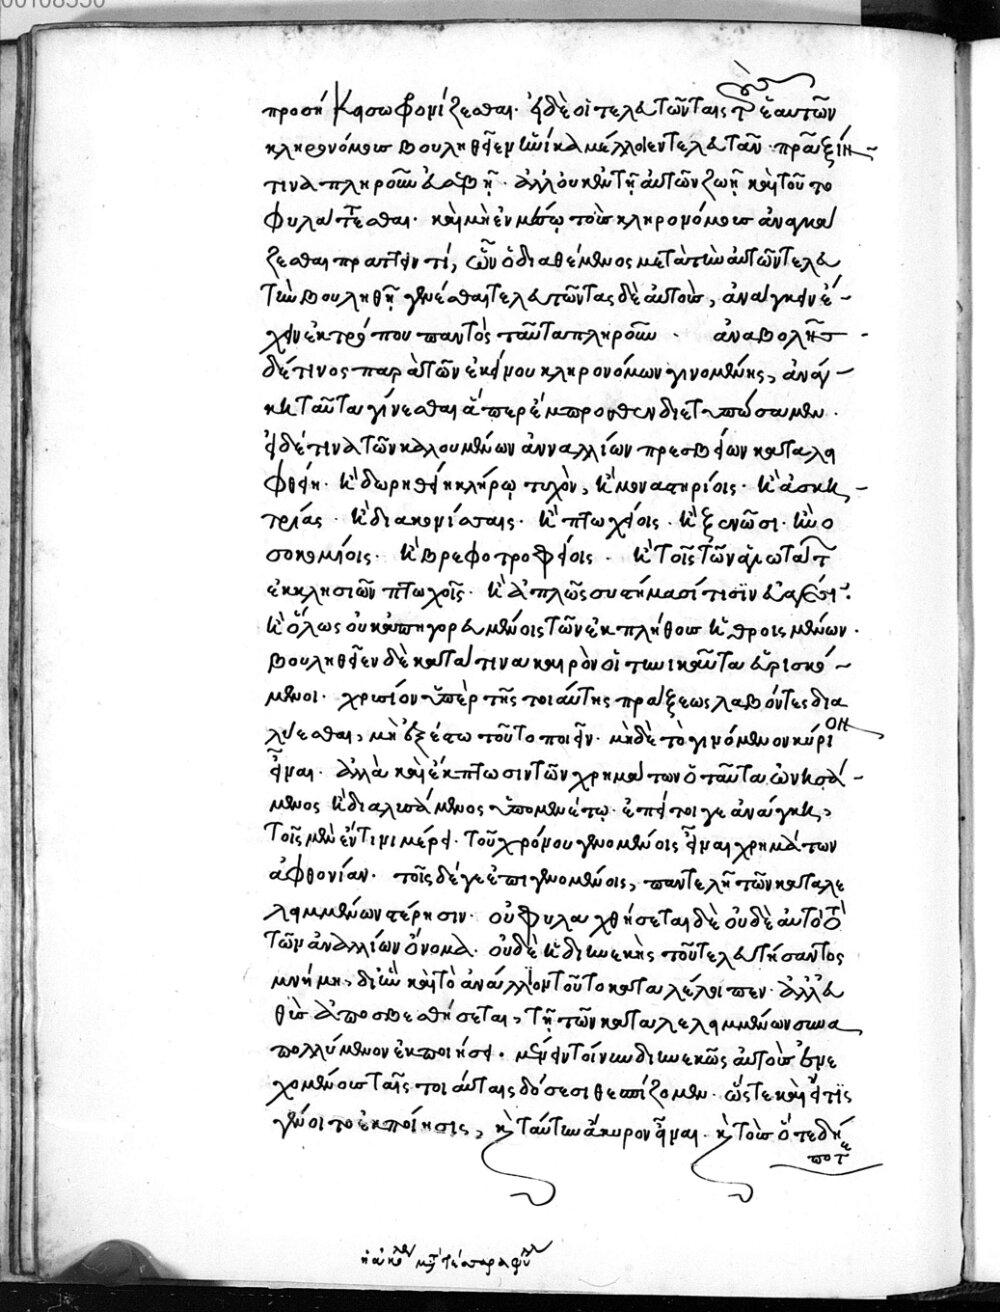 προσήκησωφρονίζεσθαι. εἰ δὲ οἱ τελευτῶντες τοὺς ἑαυτῶν
κληρονόμους βουληθεῖεν ἡνίκα μέλλοιεν τελευτᾶν πρᾶξίν
τινα πληροῦν εὐσεβῆ. ἀλλ' οὐκ ἐν τῇ αὐτῶν ζωῇ καὶ τοῦτο
φυλάττεσθαι. καὶ μὴ ἐν μέσῳ τοὺς κληρονόμους ἀναγκά
ζεσθαι πράττειν τί, ὧν ὁ διαθέμενος μετὰ τὴν αὐτῶν τελευ
τὴν βουληθῇ γενέσθαι τελευτῶντας δὲ αὐτοὺς, ἀνάγκην ἔ-
χειν ἐκ τρόπου παντὸς ταῦτα πληροῦν. ἀναβολῆς
δέ τινος παρὰ τῶν ἐκείνου κληρονόμων γινομένης, ἀνάγ-
κη ταῦτα γίνεσθαι ἅπερ ἔμπροσθεν διετυπώσαμεν.
εἰ δέ τινα τῶν καλουμένων ἀνναλλίων πρεσβείων καταλη
φθείη. ἢ δωρηθείη κλήρῳ τυχὸν, ἢ μοναστηρίοις. ἢ ἀσκη-
τρίαις. ἢ διακονίσσαις. ἢ πτωχείοις. ἢ ξενῶσι. ἢ νο
σοκομείοις. ἢ βρεφοτροφείοις. ἢ τοῖς τῶν ἁγιωτάτων
ἐκκλησιῶν πτωχοῖς. ἢ ἁπλῶς συστήμασί τισιν εὐαγέσι.
ἢ ὅλως οὐ κατηγορευμένοις τῶν ἐκ πλήθους ἠθροισμένων.
βουληθεῖεν δὲ κατά τινα καιρὸν οἱ τηνικαῦτα εὑρισκό-
μενοι. χρυσίον ὑπὲρ τῆς τοιαύτης πράξεως λαβόντες δια
λύεσθαι, μὴ ἐξέστω τοῦτο ποιεῖν. μηδὲ τὸ γινόμενον κύριον
εἶναι. ἀλλὰ καὶ ἔκπτωσιν τῶν χρημάτων ὁ ταῦτα ὠνησά-
μενος ἢ διαλυσάμενος ὑπομενέτω. ἐπεί τοι γε ἀνάγκη,
τοῖς μὲν ἔν τινι μέρει τοῦ χρόνου γενομένοις εἶναι χρημάτων
ἀφθονίαν. τοῖς δέ γε ἐπιγενομένοις, παντελῆ τῶν καταλε
λειμμένων στέρησιν. οὐ φυλαχθήσεται δὲ οὐδὲ αὐτὸ τὸ
τῶν ἀναλλίων ὄνομα. οὐδὲ ἡ διηνεκὴς τοῦ τελευτήσαντος
μνήμη, δι' ἣν καὶ τὸ ἀνάλλιον τοῦτο καταλέλοιπεν. ἀλλ' εὐ
θὺς ἀποσβεσθήσεται, τῇ τῶν καταλελειμμένων συνα
πολλύμενον ἐκποιήσει. μένειν τοίνυν διηνεκῶς αὐτοὺς ἐνε
χομένους ταῖς τοιαύταις δόσεσι θεσπίζομεν. ὥστε καὶ εἴ τις
γένοιτο ἐκποίησις, καὶ ταύτην ἄκυρον εἶναι. καὶ τοὺς ὁτεδή
ποτε